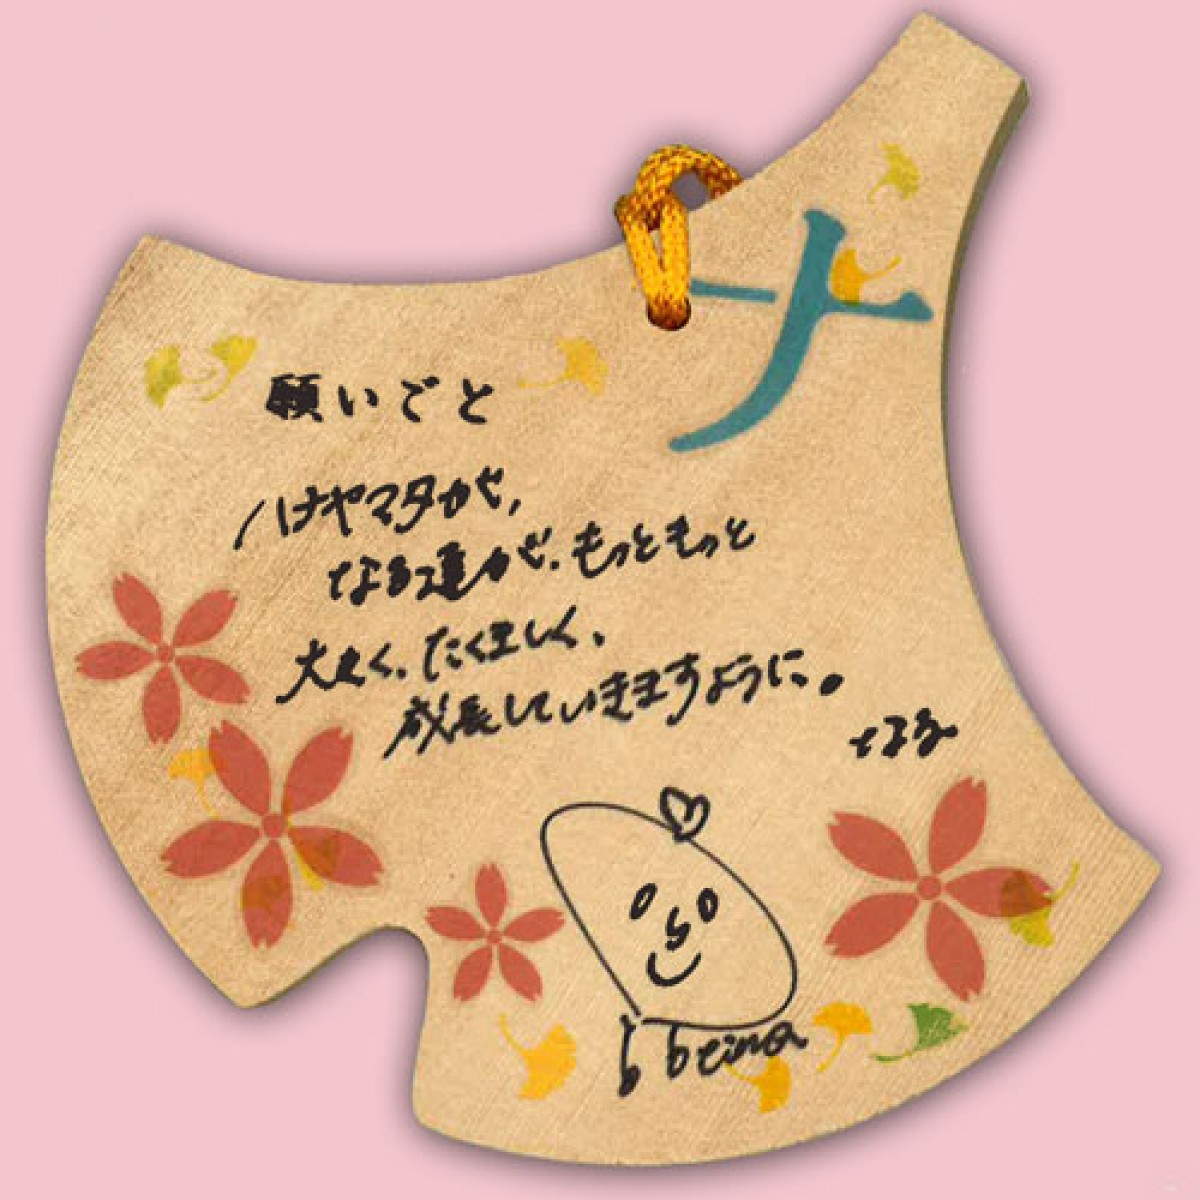 ナ
願いごと
ハナヤマタが、
なる達が、もっともっと
大きく、たくましく、
成長していきますように。
なる